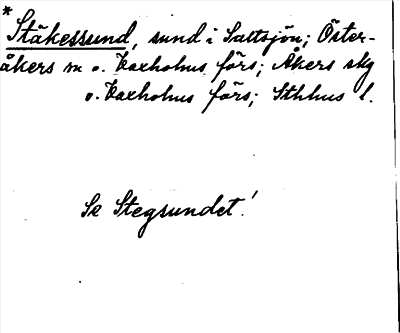 *
Stäkessund, sund i Saltsjön; Öster-
åkers sn o. Vaxholms förs; Åkers skg
o. Vaxholms förs; Sthlms l.
Se Stegsundet!